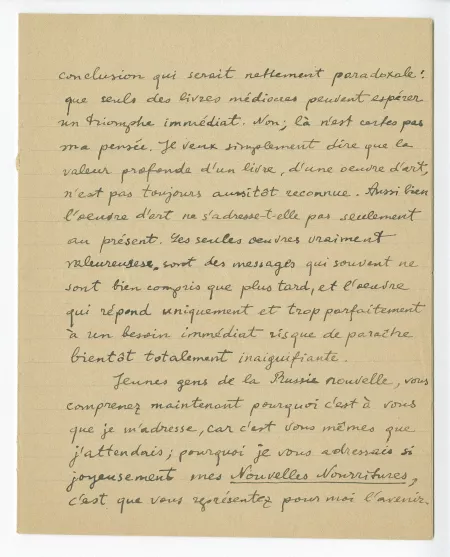 conclusion qui serait nettement paradoxale :
que seuls des livres médiocres peuvent espérer
un triomphe immédiat. Non; là n'est certes pas
ma pensée. Je veux simplement dire que la
valeur profonde d'un livre, d'une oeuvre d'art,
n'est pas toujours aussitôt reconnue. Aussi bien
l'oeuvre d'art ne s'adresse-t-elle pas seulement
au présent. Les seules oeuvres vraiment
valeureuses sont des messages qui souvent ne
sont bien compris que plus tard, et l'oeuvre
qui répond uniquement et trop parfaitement
à un besoin immédiat risque de paraître
bientôt totalement inaiguifiante.
Jeunes gens de la Russie nouvelle, vous
comprenez maintenant pourquoi c'est à vous
que je m'adresse, car c'est vous mêmes que
j'attendais; pourquoi je vous adressais si
joyeusement mes Nouvelles Nourritures,
c'est que vous représentez pour moi l'avenir.